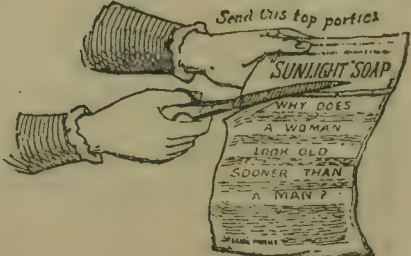 Send this top portion
"SUNLIGHT" SOAP
WHY DOES
A WOMAN
LOOK OLD
SOONER THAN
A MAN?